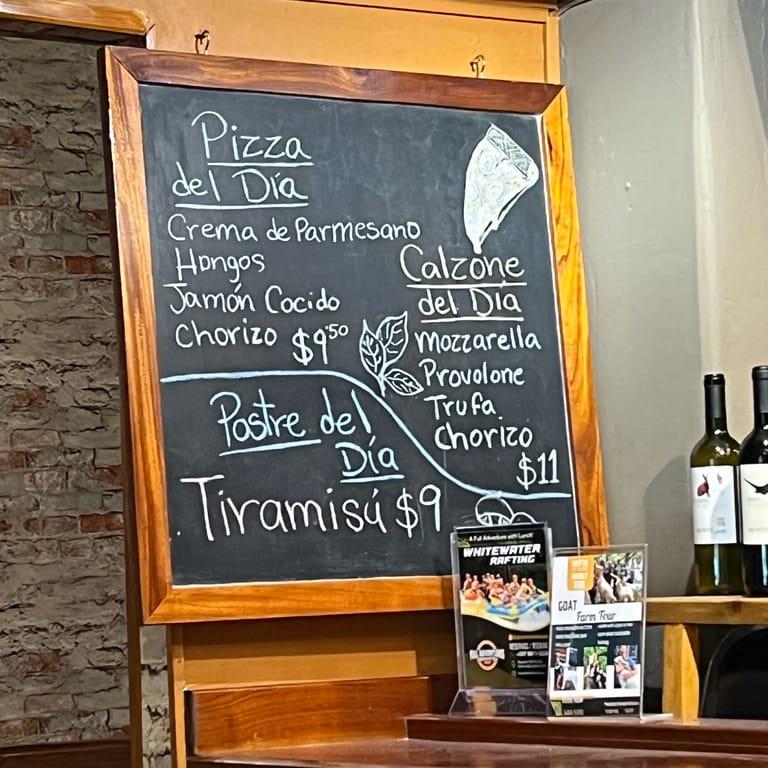 Pizza
del Día
Crema de Parmesano
Hongos
Jamón Cocido
Chorizo $9.50
Calzone
del Día
Mozzarella
Provolone
Trufa
Chorizo
$11
Postre del
Día
Tiramisú $9
A Full Adventure with Lunch!
WHITEWATER
RAFTING
GOAT
Farm Tour